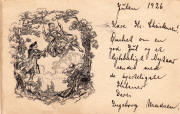 Julen 1926
Kære Hr.
Ønsket om en
god Jul og et
lykkeligt Nytaar
sendes med
de hjerteligste
Hilsner
Deres
Ingeborg Madsen